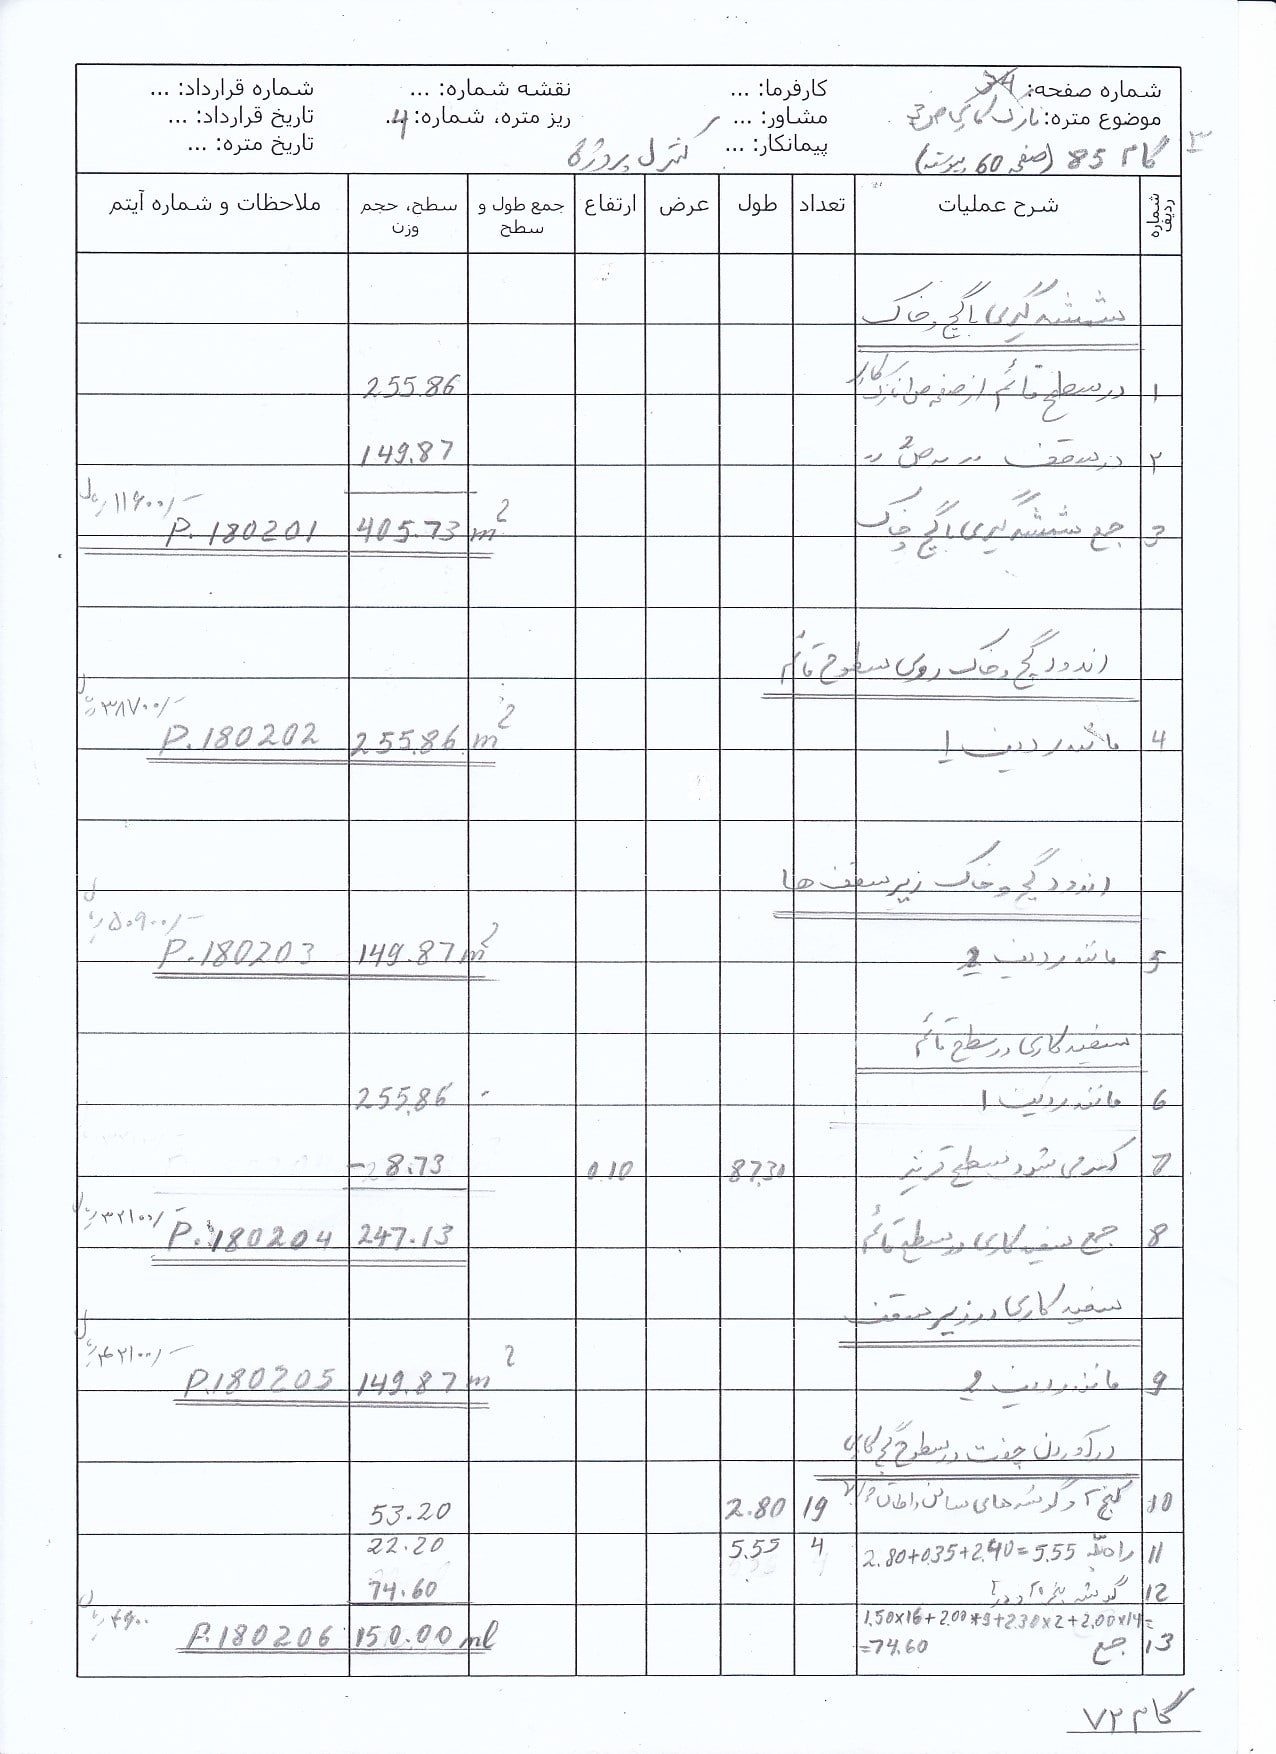 شماره صفحه: 34
کارفرما: ...
نقشه شماره: ...
شماره قرارداد: ...
موضوع متره: نازک کاری ص 3
مشاور: ...
ریز متره، شماره: 4..
تاریخ قرارداد: ...
گام 85 (صفحه 60 پیوسته)
پیمانکار: ...
کنترل پروژه
تاریخ متره: ...
شماره ردیف
شرح عملیات
تعداد
طول
عرض
ارتفاع
جمع طول و سطح
سطح، حجم وزن
ملاحظات و شماره آیتم
شمشه گیری با گچ و خاک
۱ در سطح قائم از صفحه نازک کاری 255.86
۲ در سقف " " ص 2 " 149.87
۱۱۶۰۰/- ریال
3 جمع شمشه گیری با گچ و خاک 405.73 m² P.180201
اندود گچ و خاک روی سطوح قائم
۳۸۷۰۰/- ریال
4 مانند ردیف 1 255.86 m² P.180202
اندود گچ و خاک زیر سقف ها
۵۰۹۰۰/- ریال
5 مانند ردیف 2 149.87 m² P.180203
سفید کاری در سطح قائم
6 مانند ردیف 1 255.86
7 کسر می شود سطح قرنیز 87.30 0.10 -8.73
۳۲۱۰۰/- ریال
8 جمع سفید کاری در سطح قائم 247.13 P.180204
سفید کاری در زیر سقف
۴۲۱۰۰/- ریال
9 مانند ردیف 2 149.87 m² P.180205
درآوردن چفت در سطوح گچ کاری
10 کنج ها و گوشه های سالن و اطاق ها 19 2.80 53.20
11 راه پله 2.80+0.35+2.40=5.55 4 5.55 22.20
12 گوشه پنجره و در 74.60
1.50×16+2.00×9+2.30×2+2.00×14=
=74.60
۴۹۰۰ ریال
13 جمع 150.00 ml P.180206
گام ۷۲